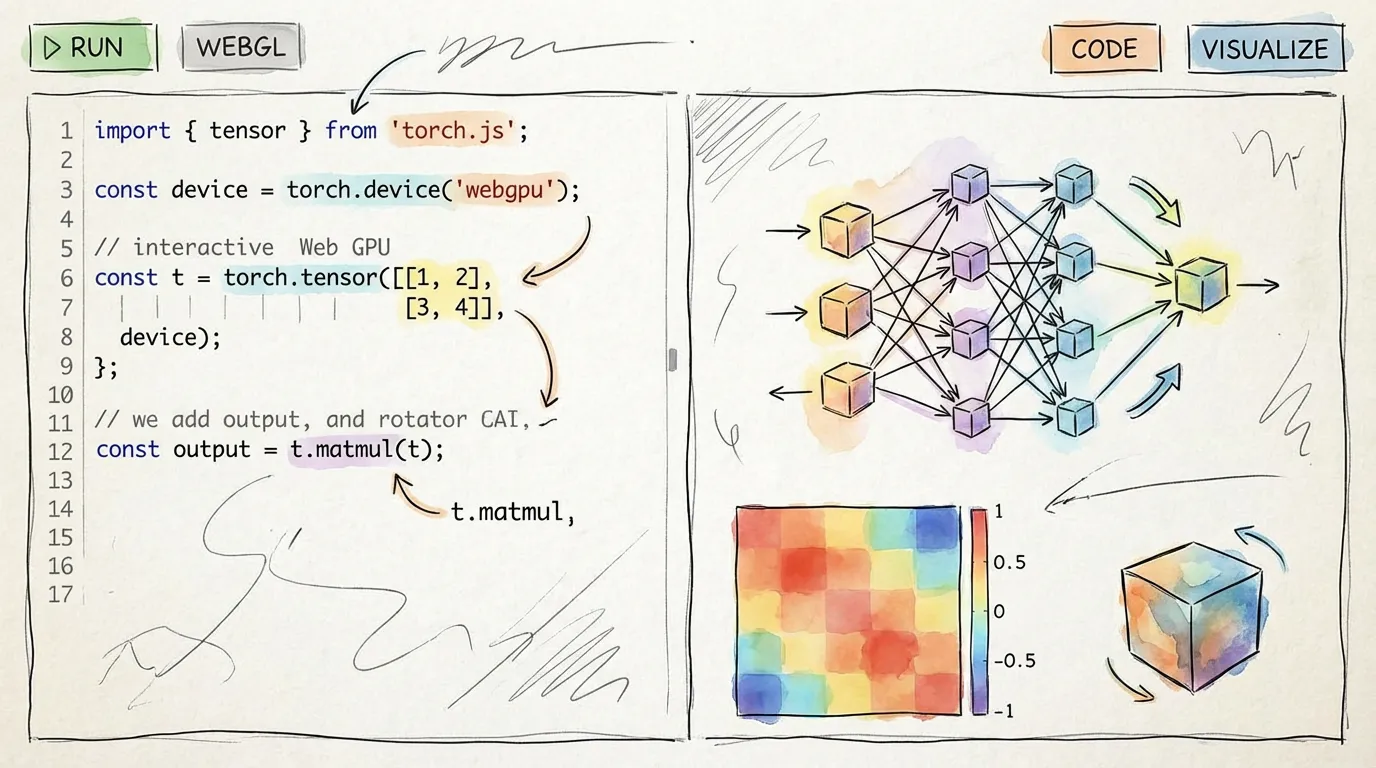 RUN
WEBGL
CODE
VISUALIZE
1 import { tensor } from 'torch.js';
2
3 const device = torch.device('webgpu');
4
5 // interactive Web GPU
6 const t = torch.tensor([[1, 2],
7 [3, 4]],
8 device);
9 };
10
11 // we add output, and rotator CAI,
12 const output = t.matmul(t);
13
14 t.matmul,
15
16
17
1
0.5
0
-0.5
-1